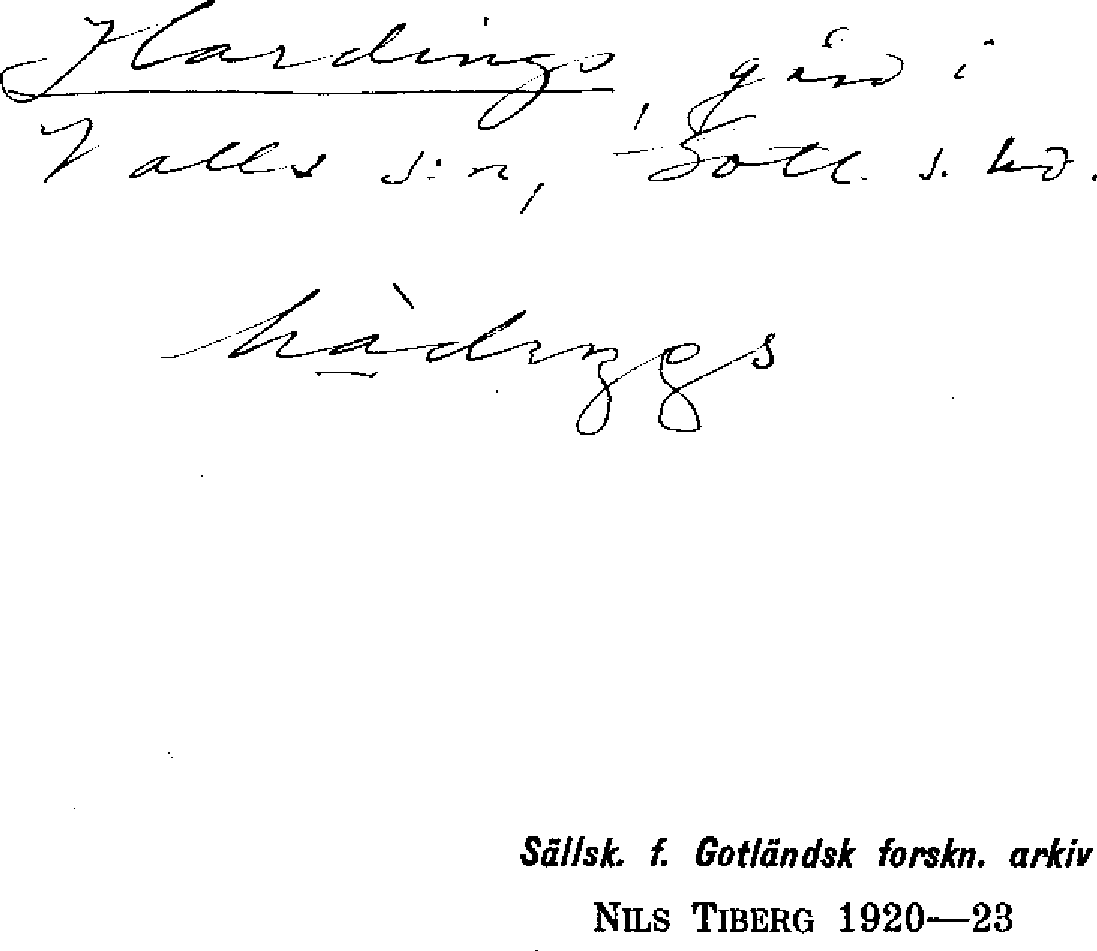 Hardings, gård i
Valls s:n, Gotl. s. hd.
hàdiŋgs
Sällsk. f. Gotländsk forskn. arkiv
NILS TIBERG 1920—23